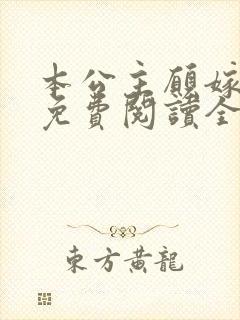 本公主願嫁
免費閱讀全
東方黃龍